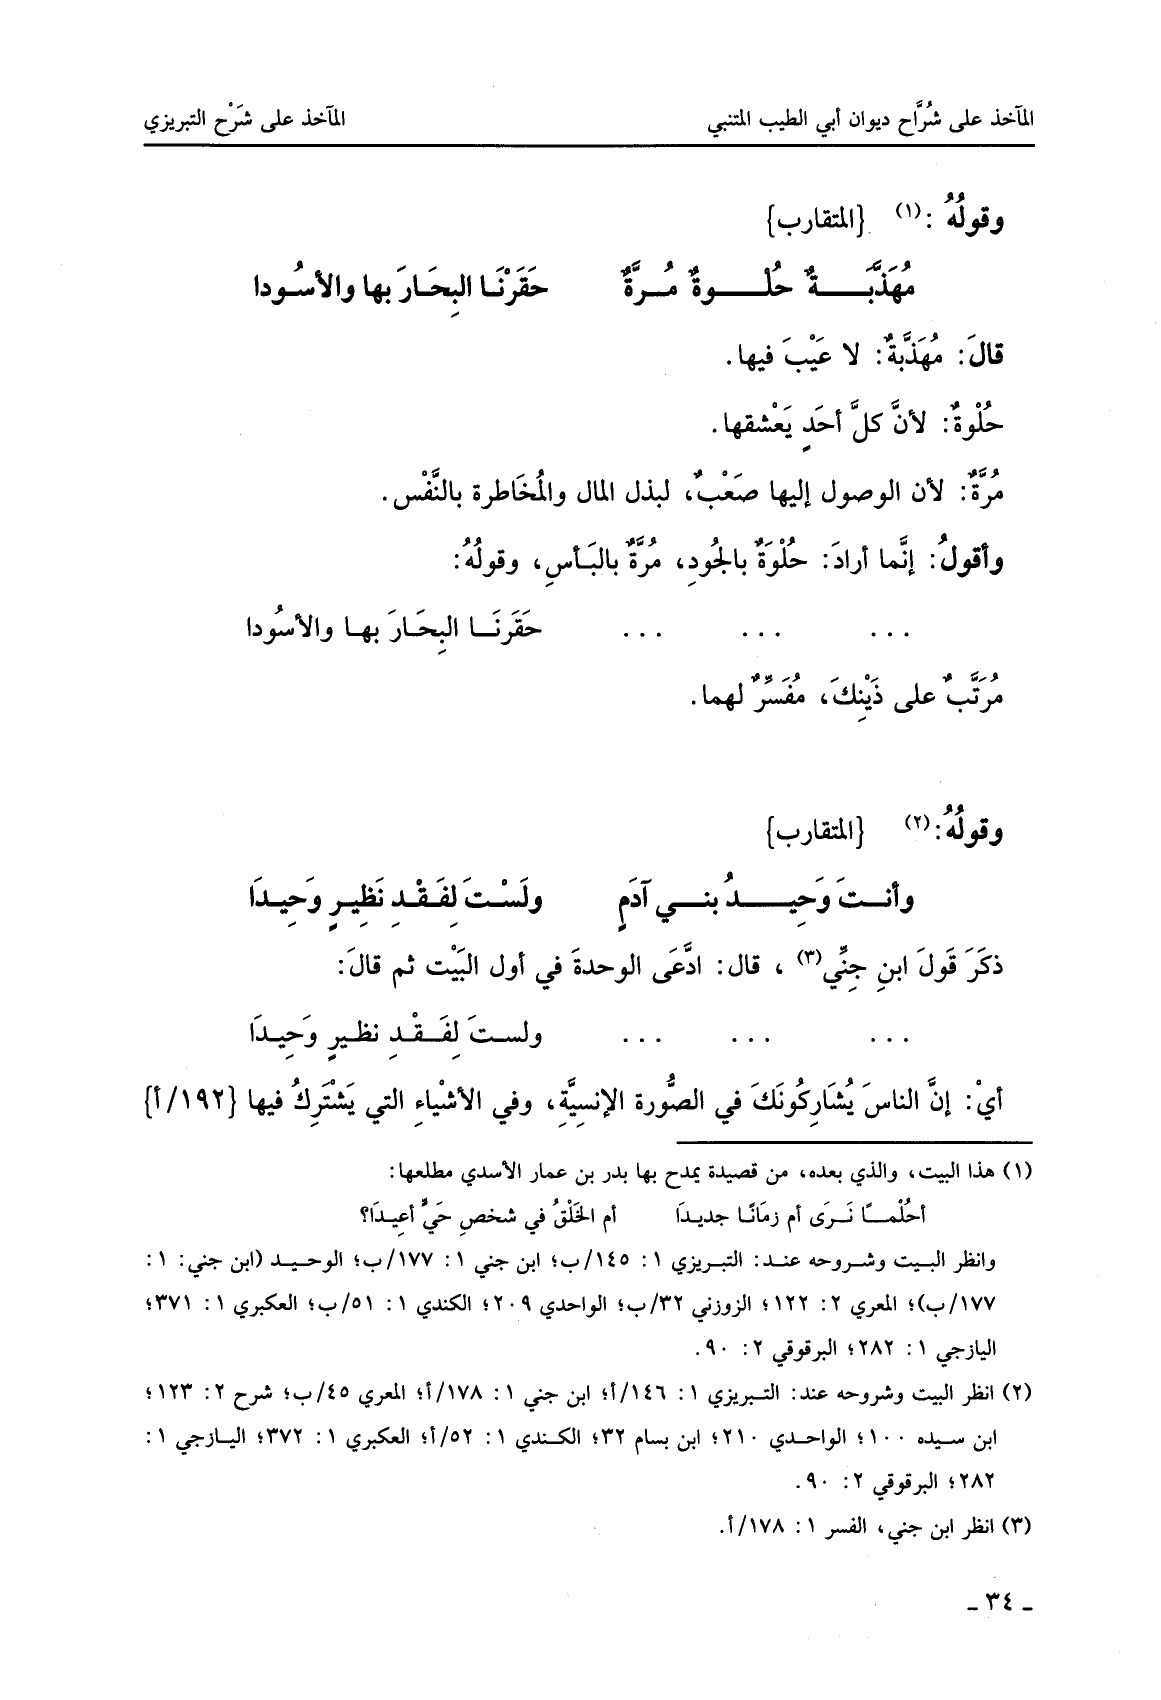 المآخذ على شُرَّاح ديوان أبي الطيب المتنبي    المآخذ على شَرْح التبريزي
وقولُهُ :(١) {المتقارب}
مُهَذَّبَـــةٌ حُلْـــوةٌ مُــرَّةٌ    حَقَرْنَـا البِحَـارَ بها والأسُـودا
قالَ: مُهَذَّبةٌ: لا عَيْبَ فيها.
حُلْوةٌ: لأنَّ كلَّ أحَدٍ يَعْشقها.
مُرَّةٌ: لأن الوصول إليها صَعْبٌ، لبذل المال والمُخَاطرة بالنَّفْس.
وأقولُ: إنَّما أرادَ: حُلْوَةٌ بالجُودِ، مُرَّةٌ بالبَـأسِ، وقولُهُ:
... ... ...    حَقَرنَـا البِحَـارَ بهـا والأسُودا
مُرَتَّبٌ على ذَيْنِكَ، مُفَسِّرٌ لهما.
وقولُهُ:(٢) {المتقارب}
وأنـتَ وَحِيـــدُ بنــي آدَمٍ    ولَسْـتَ لِفَـقْـدِ نَظِيـرٍ وَحِيـدَا
ذكَرَ قَولَ ابنِ جِنِّي(٣) ، قال: ادَّعَى الوحدةَ في أول البَيْت ثم قالَ:
... ... ...    ولسـتَ لِفَـقْـدِ نظـيرٍ وَحِيـدَا
أيْ: إنَّ الناسَ يُشَارِكُونَكَ في الصُّورة الإنسِيَّةِ، وفي الأشْياءِ التي يَشْتَرِكُ فيها {١٩٢/أ}
(١) هذا البيت، والذي بعده، من قصيدة يمدح بها بدر بن عمار الأسدي مطلعها:
أحُلْمـــًا نَـرَى أم زمَانًـا جديـدَا    أم الخَلْقُ في شخصِ حَيٍّ أعيـدَا؟
وانظر البـيت وشـروحه عنـد: التبـريزي ١: ١٤٥/ب؛ ابن جني ١: ١٧٧/ب؛ الوحـيـد (ابن جني: ١:
١٧٧/ب)؛ المعري ٢: ١٢٢؛ الزوزني ٣٢/ب؛ الواحدي ٢٠٩؛ الكندي ١: ٥١/ب؛ العكبري ١: ٣٧١؛
اليازجي ١: ٢٨٢؛ البرقوقي ٢: ٩٠.
(٢) انظر البيت وشروحه عند: التـبريزي ١: ١٤٦/أ؛ ابن جني ١: ١٧٨/أ؛ المعري ٤٥/ب؛ شرح ٢: ١٢٣؛
ابن سـيده ١٠٠؛ الواحـدي ٢١٠؛ ابن بسام ٣٢؛ الكـندي ١: ٥٢/أ؛ العكبري ١: ٣٧٢؛ اليـازجي ١:
٢٨٢؛ البرقوقي ٢: ٩٠.
(٣) انظر ابن جني، الفسر ١: ١٧٨/أ.
ـ ٣٤ ـ